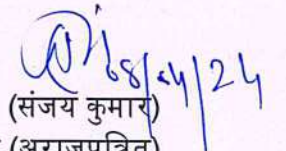 08/04/24
(संजय कुमार)
(अराजपत्रित)